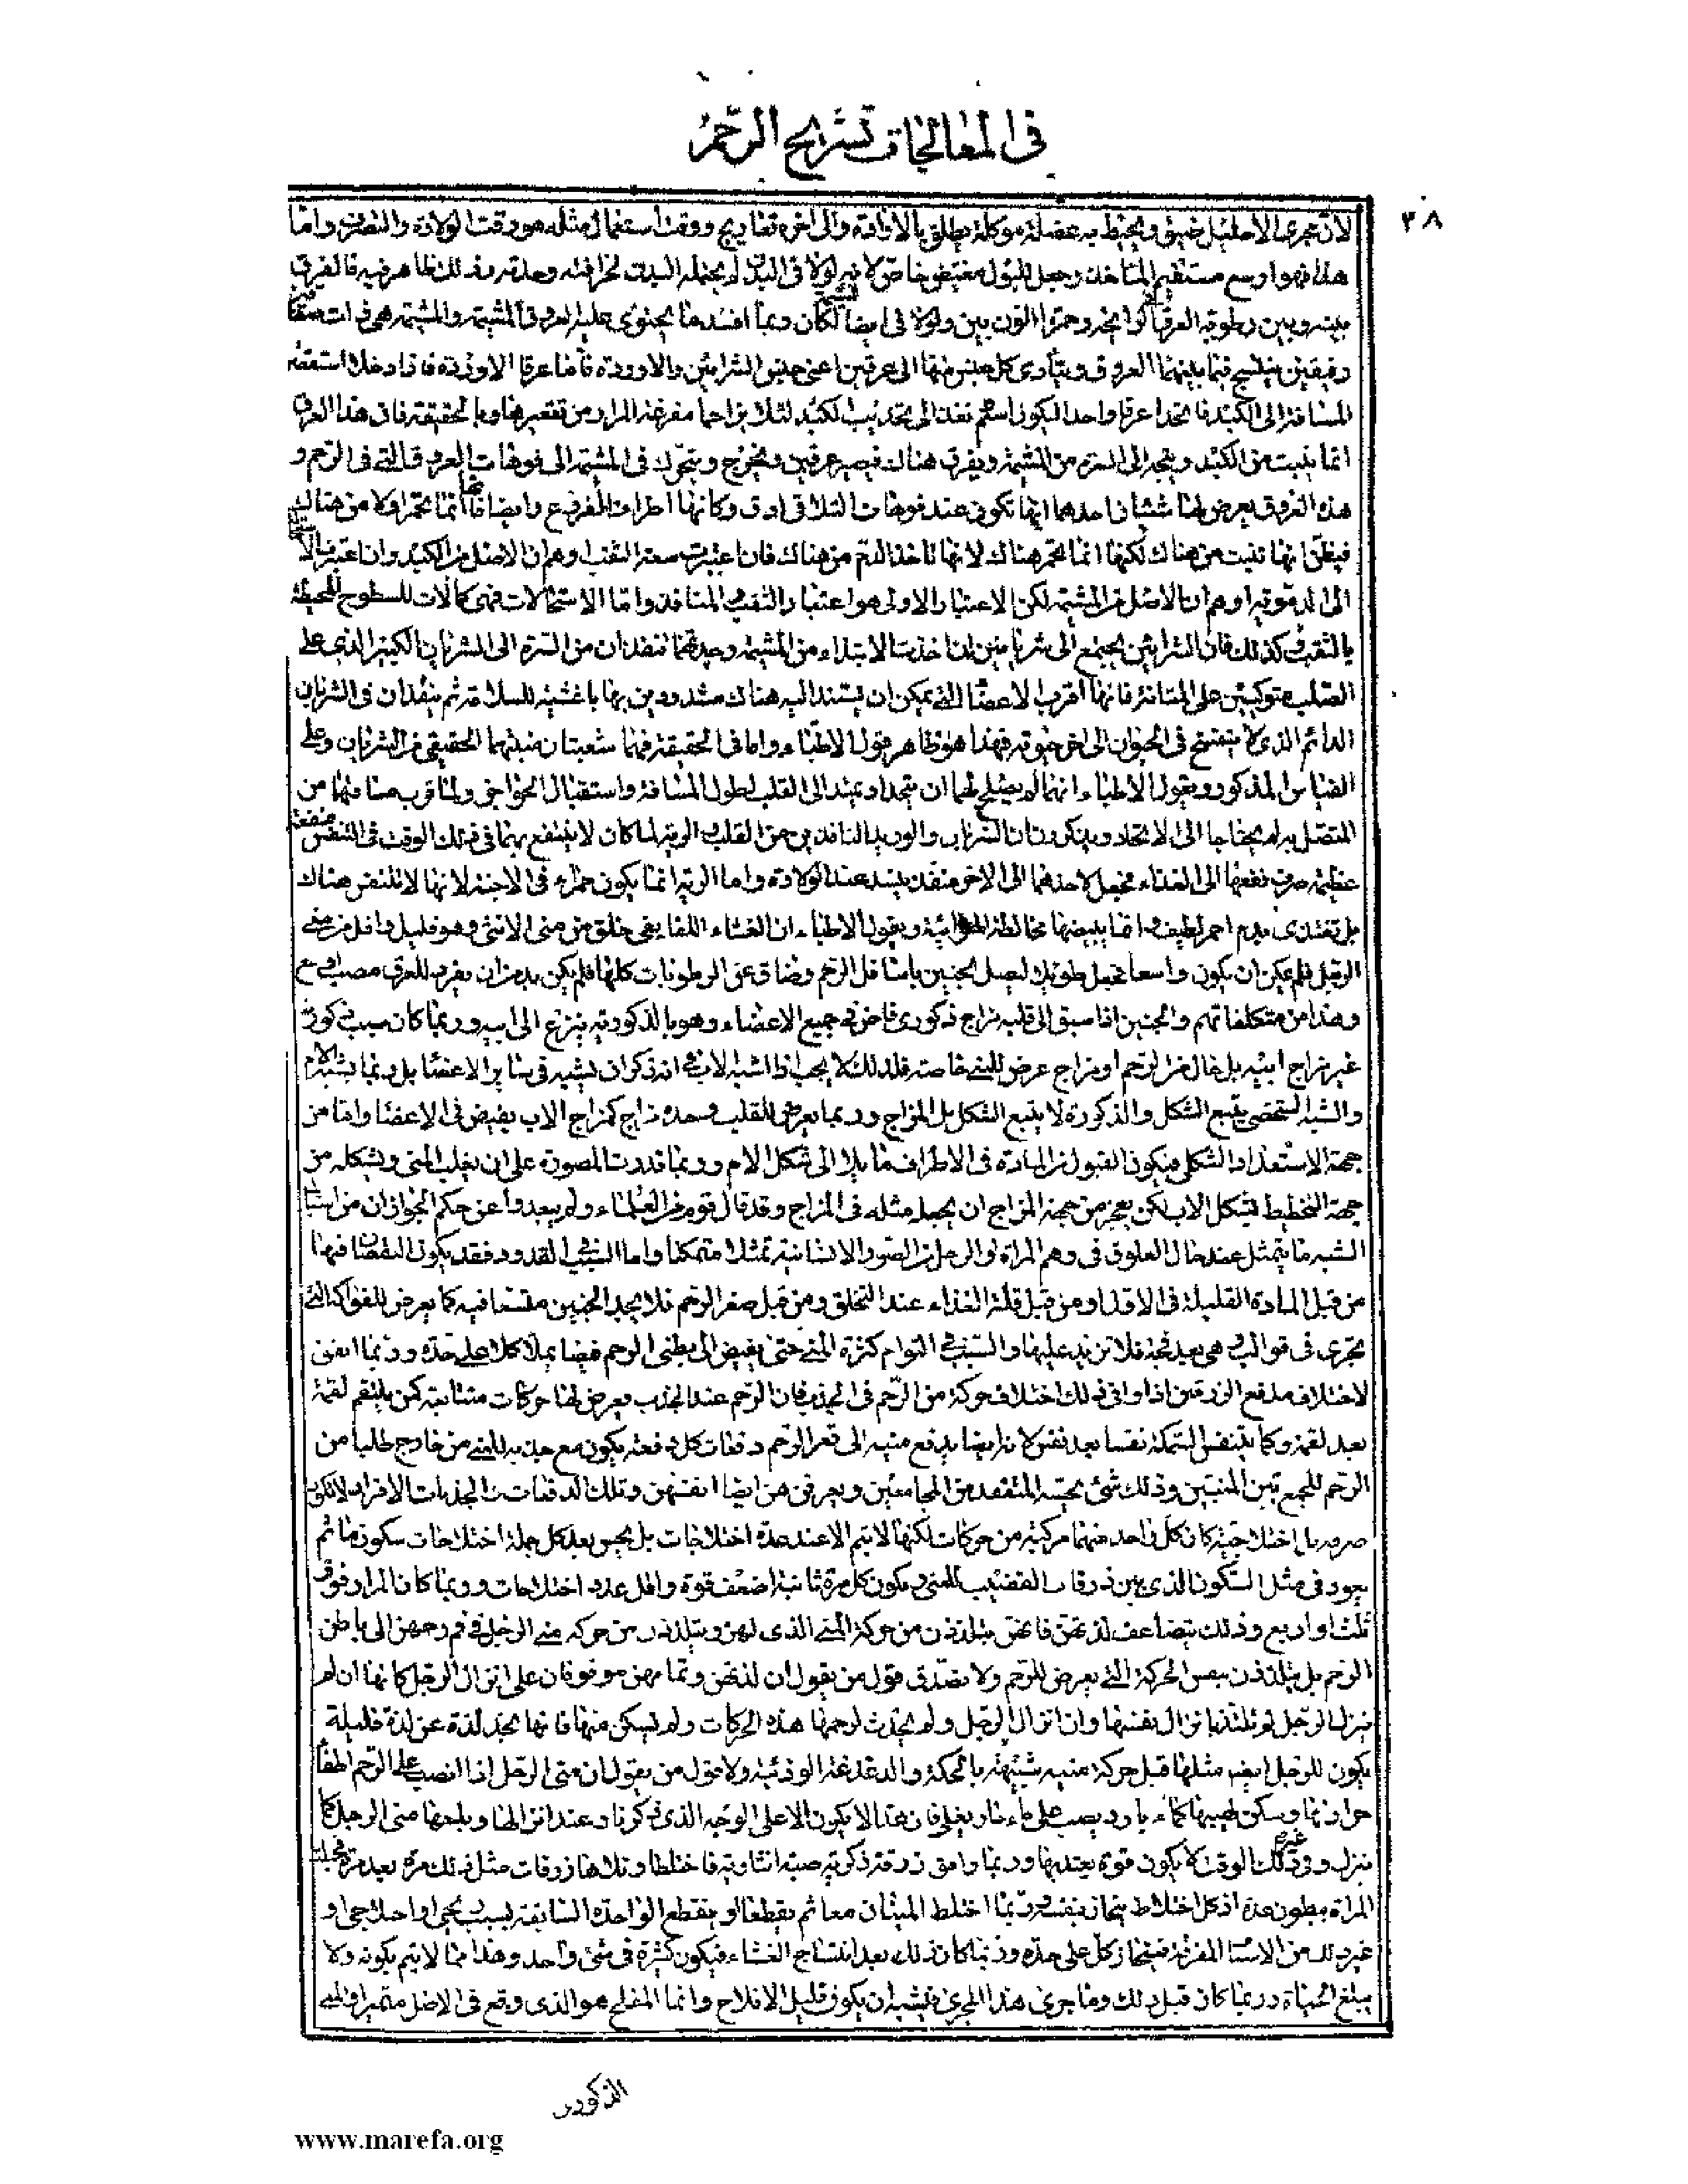 في المعالجات تشريح الرحم
٣٨
لان مجرى الاحليل ضيق ويحيط به عضلة موكلة يطلق بالارادة والى اخره تعاريج ووقت استعمال مثله هو وقت الولادة والتصرف واما
هذا فهو اوسع مستقيم المأخذ وجعل للبول مغيض خاص لانه لو لاقى البدن لم يحتمله البدن لحرافته وحدته وذلك ظاهر فيه فالفرق
بينه وبين رطوبة العرق وحمرة اللون بين ولو لاقى ايضا المشيمة لكان ربما افسد ما يحتوى عليه العروق المشيمة والمشيمة هى ذات صفاقين
رقيقين ينتسج فيما بينهما العروق ويتأدى كل جنس منها الى عرقين اعنى جنس الشرائين والاوردة فاما عرقا الاوردة فاذا دخلا استقصرا
المسافة الى الكبد فاتحدا عرقا واحدا ليكون اسلم نفذ الى تحديب الكبد لئلا يزاحما مفرغة المرار من تقعيرها وبالحقيقة فان هذا العرق
انما ينبت من الكبد ويتجه الى السرة من المشيمة ويفرق هناك فيصير عرقين ويخرج ويتحرك فى المشيمة الى فوهات العروق التى فى الرحم و
هذه العروق يعرض لها شيئان احدهما انها تكون عند فوهات التلاقى ادق وكانها اطراف الفروع وايضا فانها انما تحمر اولا من هناك
فيظن انها تنبت من هناك لكنها انما تحمر هناك لانها تاخذ الدم من هناك فان اعتبرت سعة الثقب اوهم ان الاصل من الكبد وان اعتبر الاستحالة
الى الدموية اوهم ان الاصل من المشيمة لكن الاعتبار الاولى هو اعتبار الثقب والمنافذ واما الاستحالات فهى كمالات للسطوح المحيطة
بالثقب وكذلك فان الشرايين يجتمع الى شريانين ان اخذت الابتداء من المشيمة وجدتهما ينفذان من السرة الى الشريان الكبير الذى على
الصلب متوكيين على المثانة فانها اقرب الاعضا التى يمكن ان يستند اليه هناك مشدودين بها باغشية للسلامة ثم ينفذان فى الشريان
الدائم الذى لا ينفسخ فى الحيوان الى اخر حيوته فهذا هو ظاهر قول الاطباء واما فى الحقيقة فهما شعبتان منبتهما الحقيقى من الشريان وعلى
القياس المذكور ويقول الاطباء انهما لم يصلح لهما ان يتحدا ويمتدا الى القلب لطول المسافة واستقبال الحواجز ولما قرب مسافتهما من
المتصل به لم يحتاجا الى الاتحاد ويذكرون ان الشريان والوريد النافذين من القلب والرية لما كان لا ينتفع بهما فى ذلك الوقت فى التنفس منفعة
عظيمة صرف نفعهما الى الغذاء فجعل لاحدهما الى الاخر منفذ ينسد عند الولادة واما الرية انما يكون حمراء فى الاجنة لانها لا تتنفس هناك
بل تغتذى بدم احمر لطيف وانما يبيضها مخالطة الهوائية ويقول الاطباء ان الغشاء اللفايفى خلق من منى الانثى وهو قليل واقل من منى
الرجل فلم يمكن ان يكون واسعا فجعل طويلا ليصل الجنين باسافل الرحم وضاق عن الرطوبات كلها فلم يكن بد من ان يفرد للعرق مصب واسع
وهذا من متكلفاتهم والجنين اذا سبق الى قلبه مزاج ذكورى فاض فى جميع الاعضاء وهو بالذكورية ينزع الى ابيه وربما كان سبب ذكورته
غير مزاج ابيه بل حال من الرحم او مزاج عرض للمنى خاصة فلذلك لا يجب اذا اشبه الاب فى انه ذكر ان يشبهه فى سائر الاعضا بل ربما يشبه الام
والشبه الشخصى يتبع الشكل والذكورة لا يتبع الشكل بل المزاج وربما يعرض للقلب وحده مزاج كمزاج الاب يفيض فى الاعضا واما من
جهة الاستعداد الشكلى فيكون القبول من المادة فى الاطراف مائلا الى شكل الام وربما قدرت المصورة على ان يغلب المنى ويشكله من
جهة التخطيط بشكل الاب لكن يعجز من جهة المزاج ان يجعله مثله فى المزاج وقد قال قوم من العلماء ولم يبعدوا عن حكم الجواز ان من اسباب
الشبه ما يتمثل عند حال العلوق فى وهم المراة او الرجل من الصور الانسانية تمثلا متمكنا واما السبب فى القدود فقد يكون النقصان فيها
من قبل المادة القليلة فى الاول او من قبل قلة الغذاء عند التخلق ومن قبل صغر الرحم فلا يجد الجنين متسعا فيه كما يعرض للفواكه التى
تجرى فى قوالب وهى بعد فجة فلا تزيد عليها والسبب فى التوام كثرة المنى حتى يفيض الى بطنى الرحم فيضا يملا كلا على حدة وربما اتفق
لاختلاف مدفع الزرقين اذا وافى ذلك اختلاف حركة من الرحم فى الجذب فان الرحم عند الجذب يعرض لها حركات متتابعة كمن يلتقم لقمة
بعد لقمة وكما يتنفس السمكة نفسا بعد نفس لانه ايضا يدفع منيه الى قعر الرحم دفعات كل دفعة يكون مع جذبه للمنى من خارج طلبا من
الرحم للجمع بين المنيين وذلك شئ يحسه المتفقد من المجامعين ويعرفن هن ايضا انفسهن وتلك الدفعات والجذبات الافراد لا تكون
صرفة بل اختلاجية كان كل واحد منهما مركبة من حركات لكنها لا يتم الا عند عدة اختلاجات بل يحس بعد كل جملة اختلاجات سكون ما ثم
يعود فى مثل السكون الذى بين زرقات القضيب للمنى ويكون كل مرة ثانية اضعف قوة واقل عدد اختلاجات وربما كان المرار فوق
ثلث او اربع وذلك يتضاعف لذتهن فانهن يتلذذن من حركة المنى الذى لهن ويتلذذن من حركة منى الرجل فى فم رحمهن الى باطن
الرحم بل يتلذذن بنفس الحركة التى يعرض للرحم ولا يصدق قول من يقول ان لذتهن وتمامهن موقوفان على انزال الرجل كانها ان لم
ينزل الرجل لم تلتذ بانزال نفسها وان انزل الرجل ولم يحدث لرحمها هذه الحركات ولم يسكن منها فانها يجد لذة عن لذة قليلة
يكون للرجل ايضا مثلها قبل حركة منيه شبيهة بالحكة والدغدغة الوذئية ولا قول من يقول ان منى الرجل اذا انصب على الرحم اطفأ
حرارتها وسكن لهيبها كماء بارد يصب على ماء حار يغلى فان هذا لا يكون الا على الوجه الذى ذكرنا وعند انزالها وبلعها منى الرجل كما
ينزل وفى غير ذلك الوقت لا يكون قوة يعتد بها وربما وافق زرقة ذكرية صبة انثاوية فاختلطا وتلاها زرقات مثل ذلك مرة بعد مرة فحبلت
المراة ببطون عدة اذ كل اختلاط ينحاز بنفسه وربما اختلط المنيان معا ثم تقطعا او ينقطع الواحدة السابقة بسبب ريحى او اختلاجى او
غير ذلك من الاسباب المفرقة فينحاز كل على حدة وربما كان ذلك بعد انتساج الغشاء فيكون كثيرة فى شئ واحد وهذا مما لا يتم تكونه ولا
يبلغ الحياة وربما كان قبل ذلك وما جرى هذا المجرى فيشبه ان يكون قليل الافلاح وانما المفلح هو الذى وقع فى الاصل متميزا والمنى
الذكورى
www.marefa.org